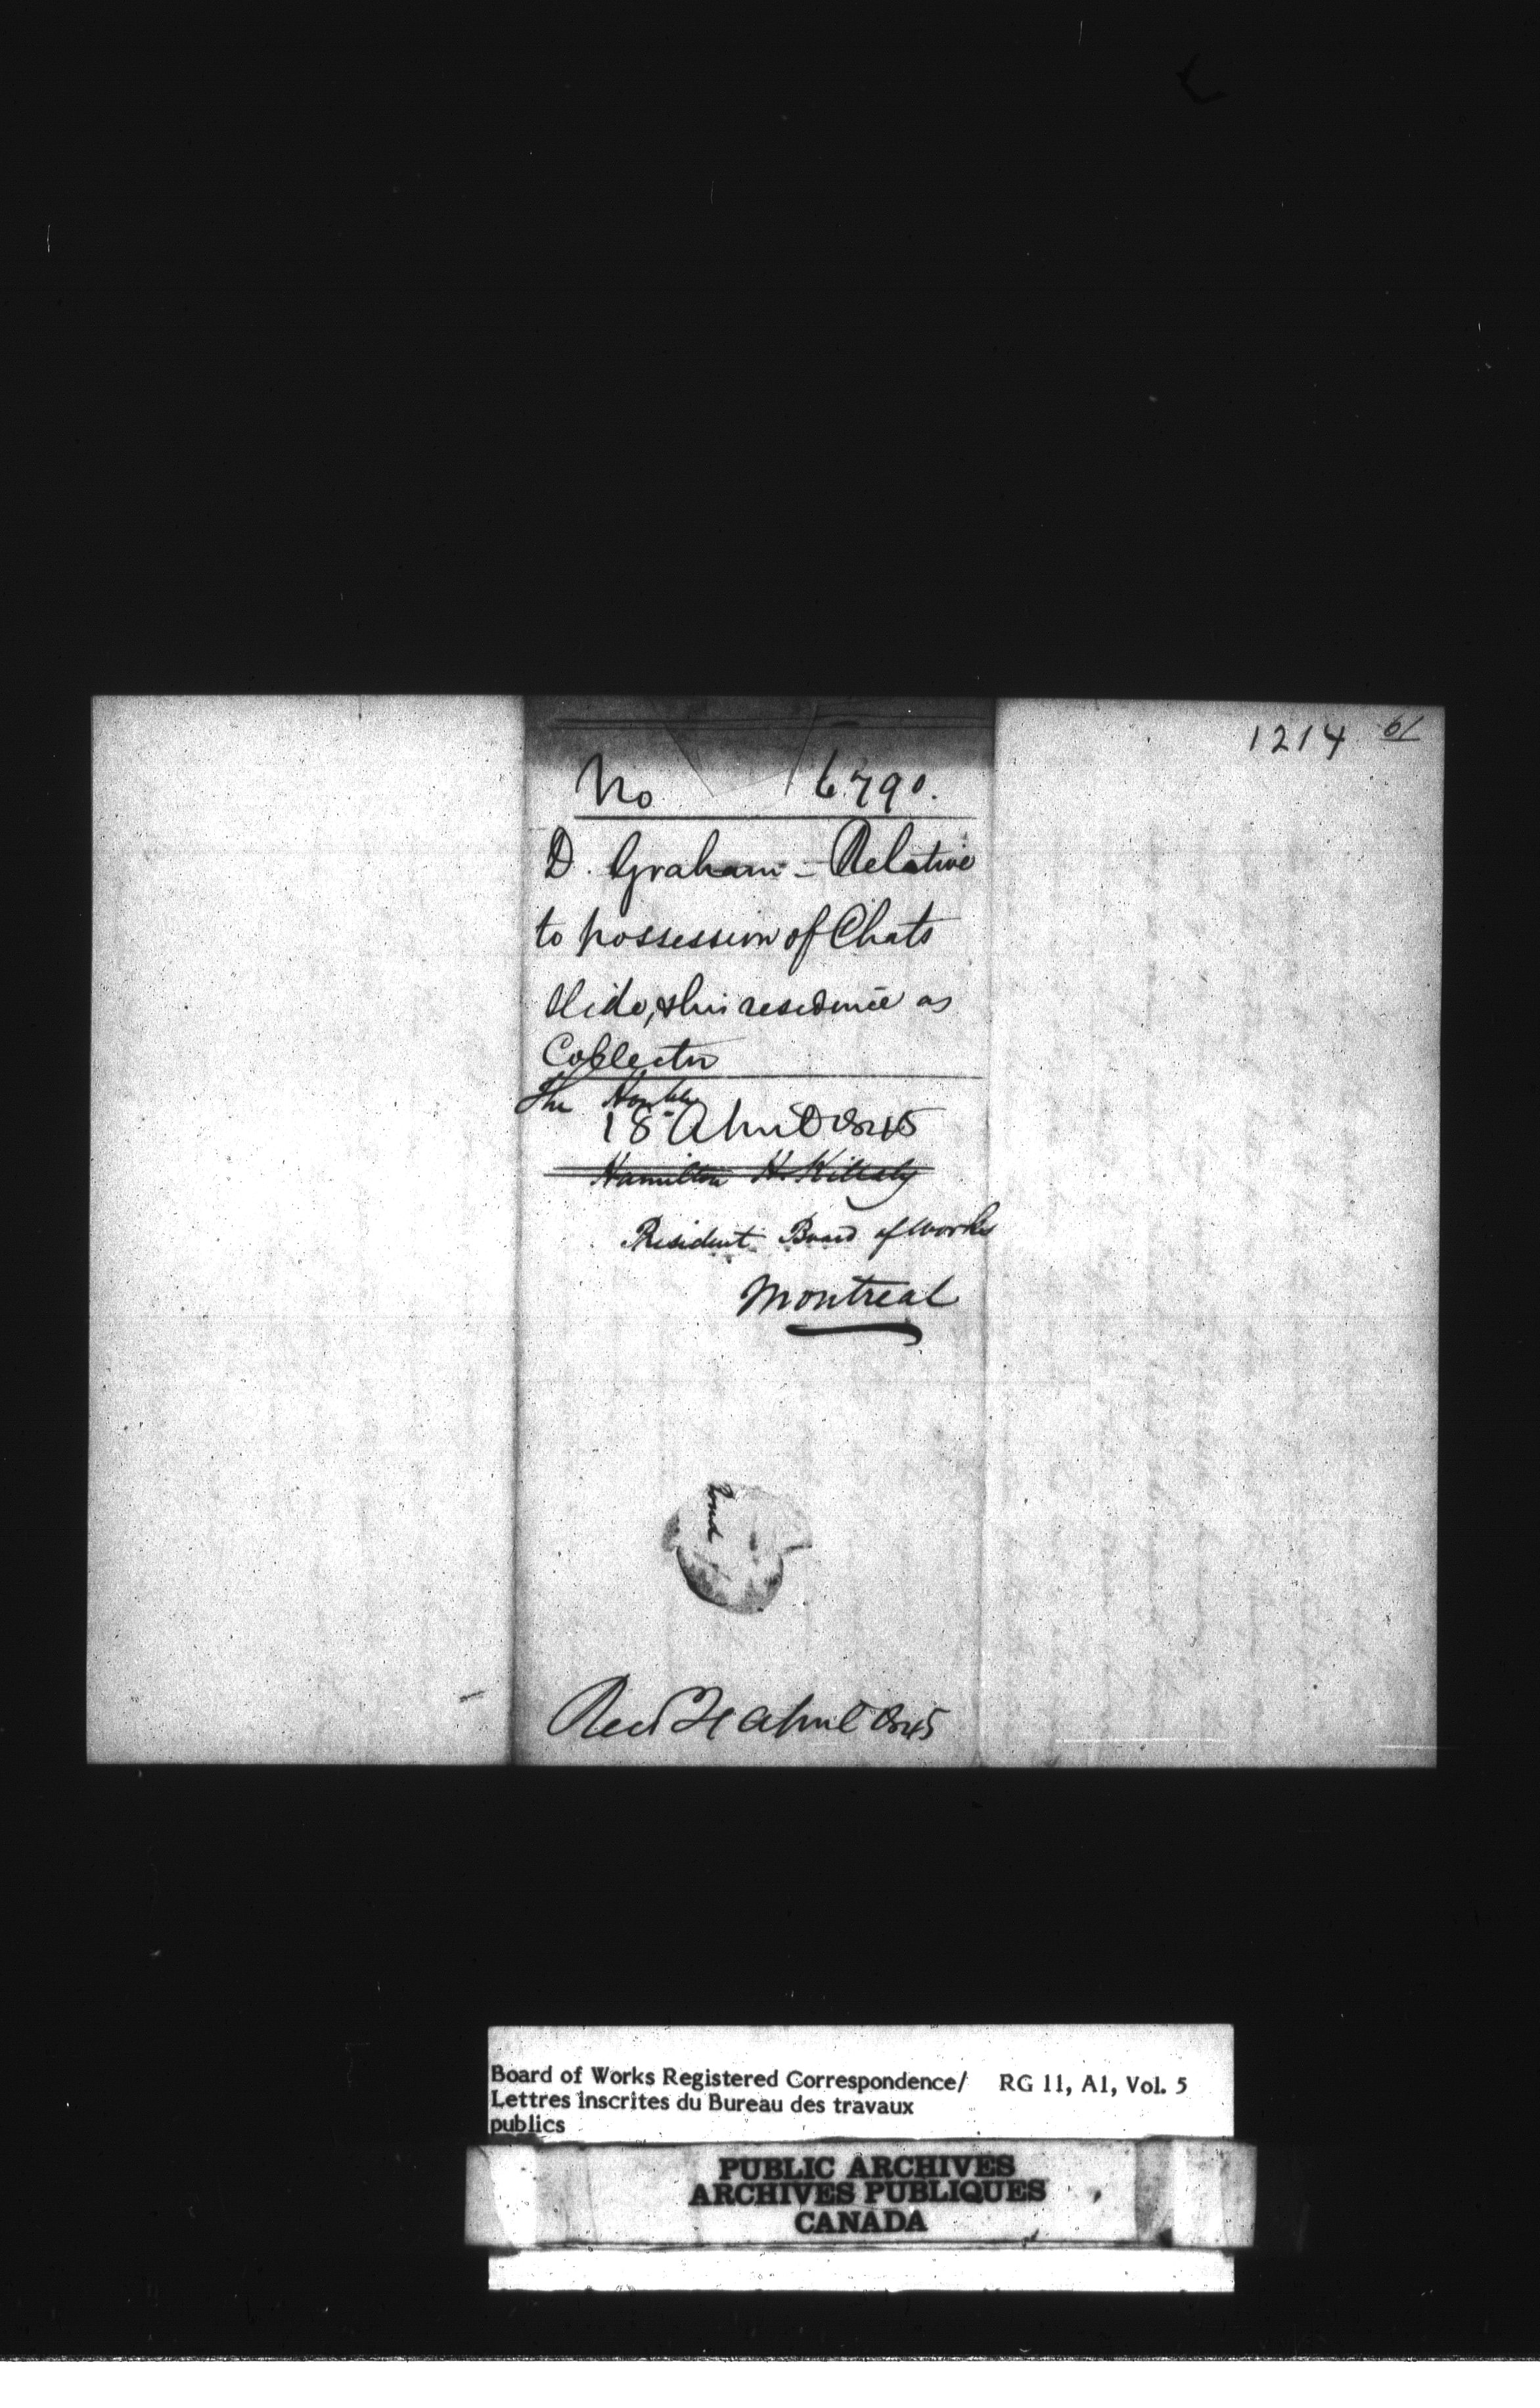 1214 61
No 6790.
D. Graham - Relative
to possession of Chats
Slide, & his residence as
Collector
The Honble
18 April 1845
Hamilton H. Killaly
President Board of Works
Montreal
Recd 21 April 1845
Board of Works Registered Correspondence/ RG 11, A1, Vol. 5
Lettres inscrites du Bureau des travaux
publics
PUBLIC ARCHIVES
ARCHIVES PUBLIQUES
CANADA